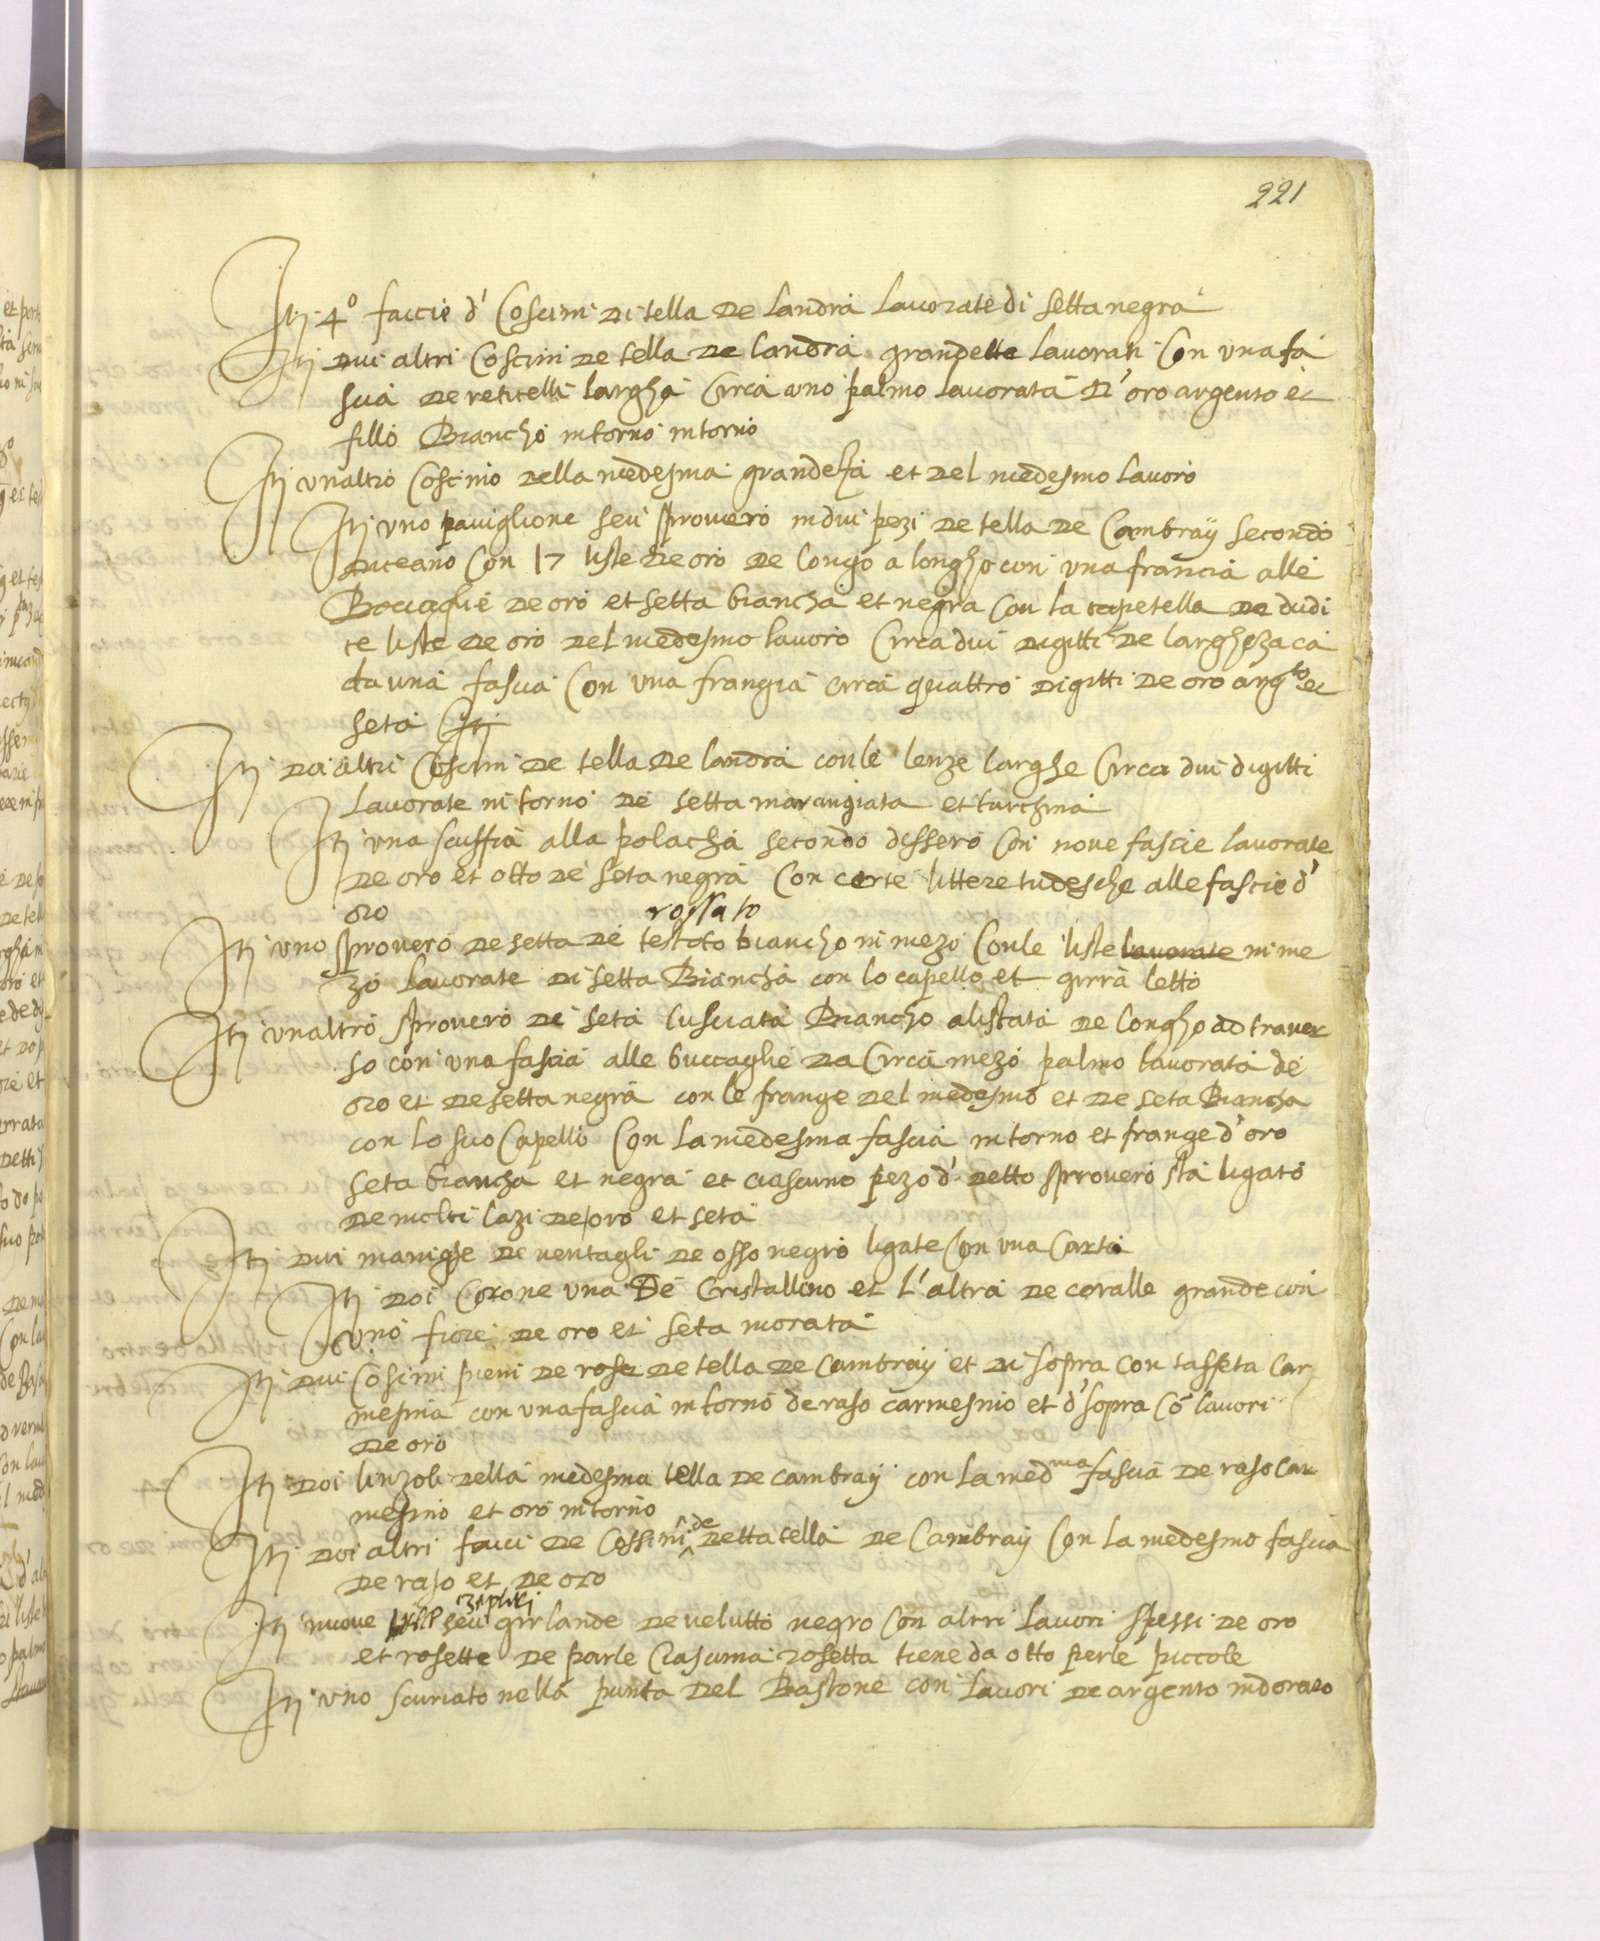 221
Itj 4º faccie d' Coscini di tella de landra lavorate di setta negra
Itj dui altri Coscini de tella de landra grandette lavorati Con una fa
scia de reticelli largha Circa uno palmo lavorata di oro argento et
fillo Biancho intorno intorno
Itj unaltro Coscino della medesma grandeza et del medesmo lavoro
Itj uno paviglione seu sproverο in dui pezi de tella de Cambraÿ secondo
diceano Con 17 liste de oro de longo a longho con una francia alle
Boccaglie de oro et setta biancha et negra Con la capetella de dudi
ce liste de oro del medesmo lavoro Circa dui digitti de largheza ca
da una fascia Con una frangia circa quattro digitti de oro argto et
seta Itj
Itj doi altri Coscini de tella de landra con le lenze larghe Circa dui digitti
lavorate in torno de setta marangiata et turchina
Itj una scuffia alla polacha secondo dissero Con nove fascie lavorate
de oro et otto de seta negra Con certe littere tudesche alle fascie d'
oro
Itj uno sprovero de setta de testato rossato biancho in mezo Con le liste lavorate in me
zo lavorate di setta Biancha con lo capello et girra letto
Itj unaltro sprovero de seta lusciata Biancho alistata de longho ad traver
so con una fascia alle buccaglie da Circa mezo palmo lavorata de
oro et de setta negra con le frange del medesmo et de seta Biancha
con lo suo Capello Con la medesma fascia intorno et frange d'oro
seta biancha et negra et ciascuno pezo d' detto sprovero sta ligato
de molti lazi de oro et seta
Itj dui maniche de ventagli de osso negro ligate Con una Carta
Itj doi Corone una De Cristallino et l'altra de coralle grande con
uno fiore de oro et seta morata
Itj dui Coscini pieni de rose de tella de Cambraÿ et di sopra con taffeta Car
mesina con una fascia intorno de raso carmesino et d'sopra Cō lavori
de oro
Itj doi linzoli della medesma tella de cambraÿ con la medma fascia de raso Car
mesino et oro intorno
Itj doi altri facci de Cossini de detta tella de Cambraÿ Con la medesmo fascia
de raso et de oro
Itj nuove seu girlande de velutto negro Con altri lavori spessi de oro
et rosette de parle Ciascuna rosetta tiene da otto perle piccole
Itj uno scuriato nella punta del Bastone con lavori de argento indorato